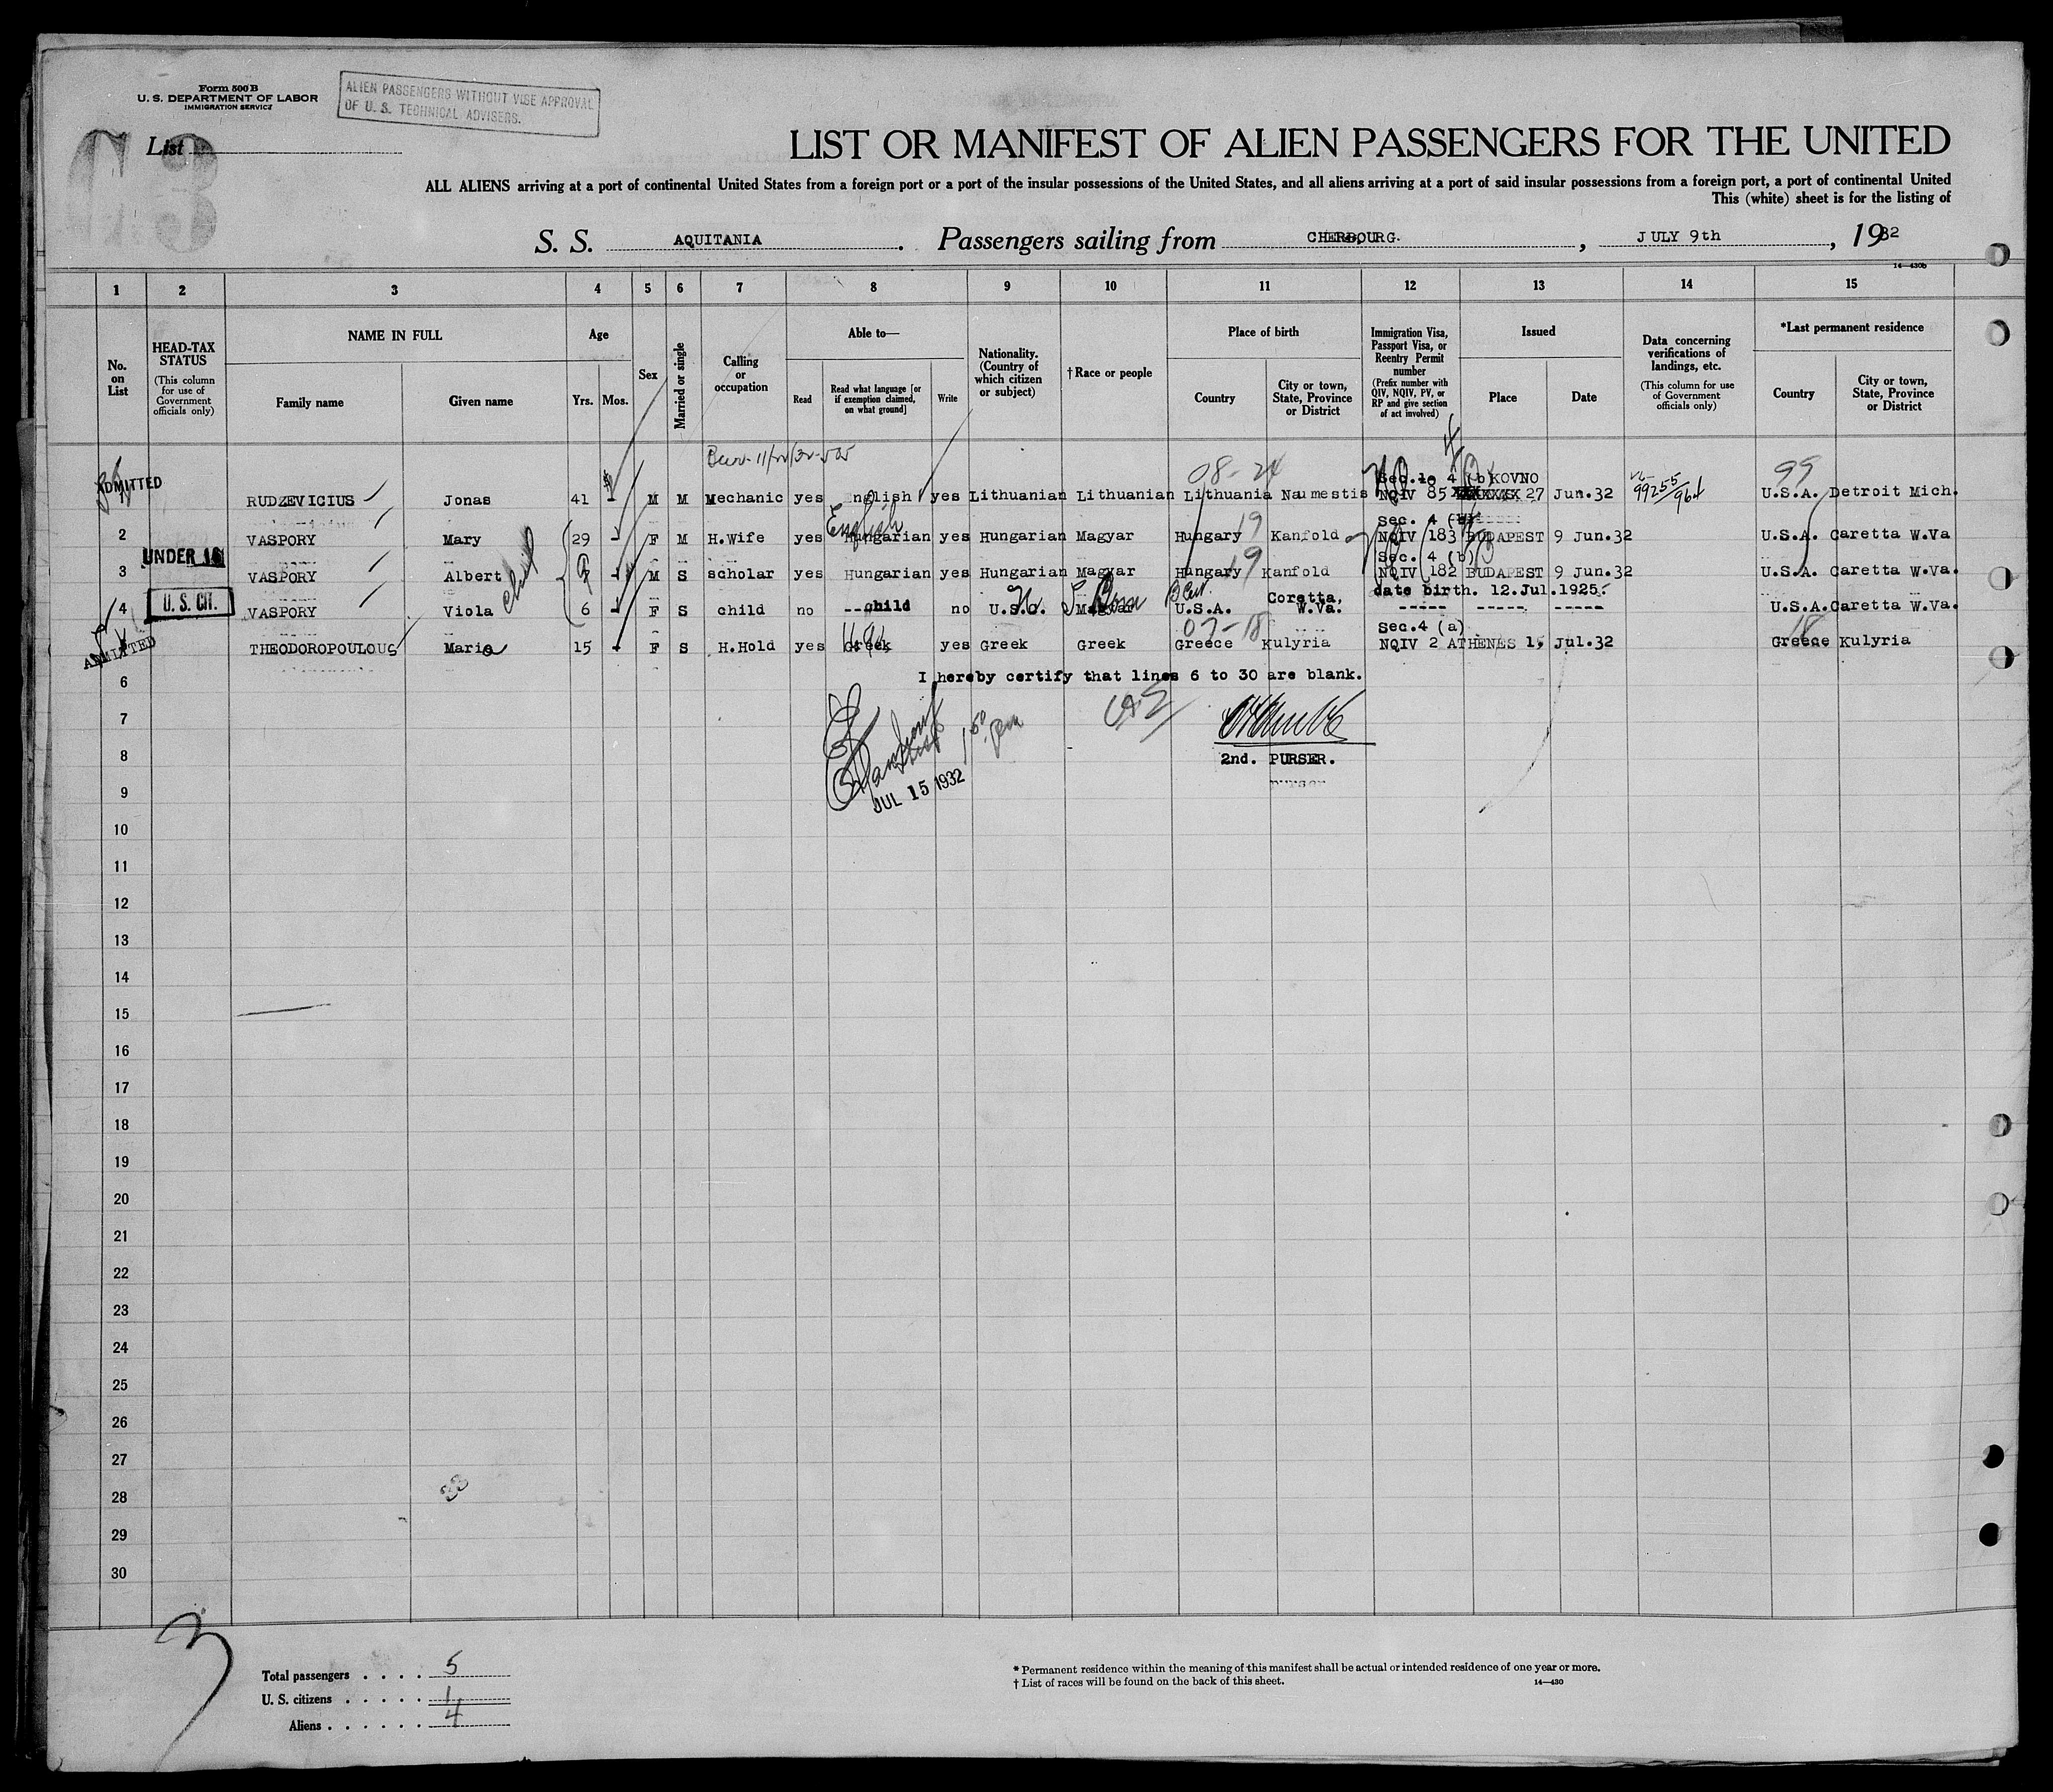 Form 500 B
U. S. DEPARTMENT OF LABOR
IMMIGRATION SERVICE
ALIEN PASSENGERS WITHOUT VISE APPROVAL
OF U. S. TECHNICAL ADVISERS.
List
LIST OR MANIFEST OF ALIEN PASSENGERS FOR THE UNITED
ALL ALIENS arriving at a port of continental United States from a foreign port or a port of the insular possessions of the United States, and all aliens arriving at a port of said insular possessions from a foreign port, a port of continental United
This (white) sheet is for the listing of
S. S. AQUITANIA. Passengers sailing from CHERBOURG. , JULY 9th , 1932
14—430b
1 2 3 4 5 6 7 8 9 10 11 12 13 14 15
No. on List
HEAD-TAX STATUS
(This column for use of Government officials only)
NAME IN FULL
Family name
Given name
Age
Yrs. Mos.
Sex
Married or single
Calling or occupation
Able to—
Read
Read what language [or if exemption claimed, on what ground]
Write
Nationality. (Country of which citizen or subject)
† Race or people
Place of birth
Country
City or town, State, Province or District
Immigration Visa, Passport Visa, or Reentry Permit number
(Prefix number with QIV, NQIV, PV, or RP and give section of act involved)
Issued
Place
Date
Data concerning verifications of landings, etc.
(This column for use of Government officials only)
*Last permanent residence
Country
City or town, State, Province or District
08-24 99
ADMITTED Sec. 4 (b) KOVNO
1 RUDZEVICIUS Jonas 41 - M M Mechanic yes English yes Lithuanian Lithuanian Lithuania Naumestis NQIV 85 27 Jun.32 99255/964 U.S.A. Detroit Mich.
English 19 Sec. 4 (b)
2 VASPORY Mary 29 - F M H.Wife yes Hungarian yes Hungarian Magyar Hungary Kanfold NQIV 183 BUDAPEST 9 Jun.32 U.S.A. Caretta W.Va
UNDER 16 19 Sec. 4 (b)
3 VASPORY Albert child M S scholar yes Hungarian yes Hungarian Magyar Hungary Kanfold NQIV 182 BUDAPEST 9 Jun.32 U.S.A. Caretta W.Va.
U. S. CIT. Coretta, date birth. 12.Jul.1925.
4 VASPORY Viola 6 - F S child no ---child no U.S.C. Magyar U.S.A. W.Va. ----- ----- ----- U.S.A. Caretta W.Va.
07-18 Sec.4 (a) 18
ADMITTED THEODOROPOULOUS Maria 15 - F S H.Hold yes Greek yes Greek Greek Greece Kulyria NQIV 2 ATHENES 1, Jul.32 Greece Kulyria
6 I hereby certify that lines 6 to 30 are blank.
7
8 2nd. PURSER.
JUL 15 1932
9
10
11
12
13
14
15
16
17
18
19
20
21
22
23
24
25
26
27
28 33
29
30
3
Total passengers . . . . 5
U. S. citizens . . . . . 1
Aliens . . . . . . 4
* Permanent residence within the meaning of this manifest shall be actual or intended residence of one year or more.
† List of races will be found on the back of this sheet. 14—430